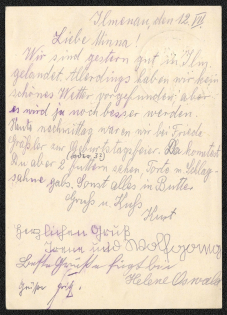 Ilmenau, den 12. VII
Liebe Minna!
Wir sind gestern gut in Ilm.
gelandet. Allerdings haben wir kein
schönes Wetter vorgefunden; aber
es wird ja noch besser werden.
Heute nachmittag waren wir bei Friedr.
Gräßler zur Geburtstagsfeier. Da konntest
(oder 3?)
Du aber 2 futtern sehen, Torte u. Schlag-
sahne gabs. Sonst alles in Butter
Gruß u. Kuß
Kurt
Herzlichen Gruß
Irene und Wolfgang
Beste Grüße fügt bei
Helene Oswald